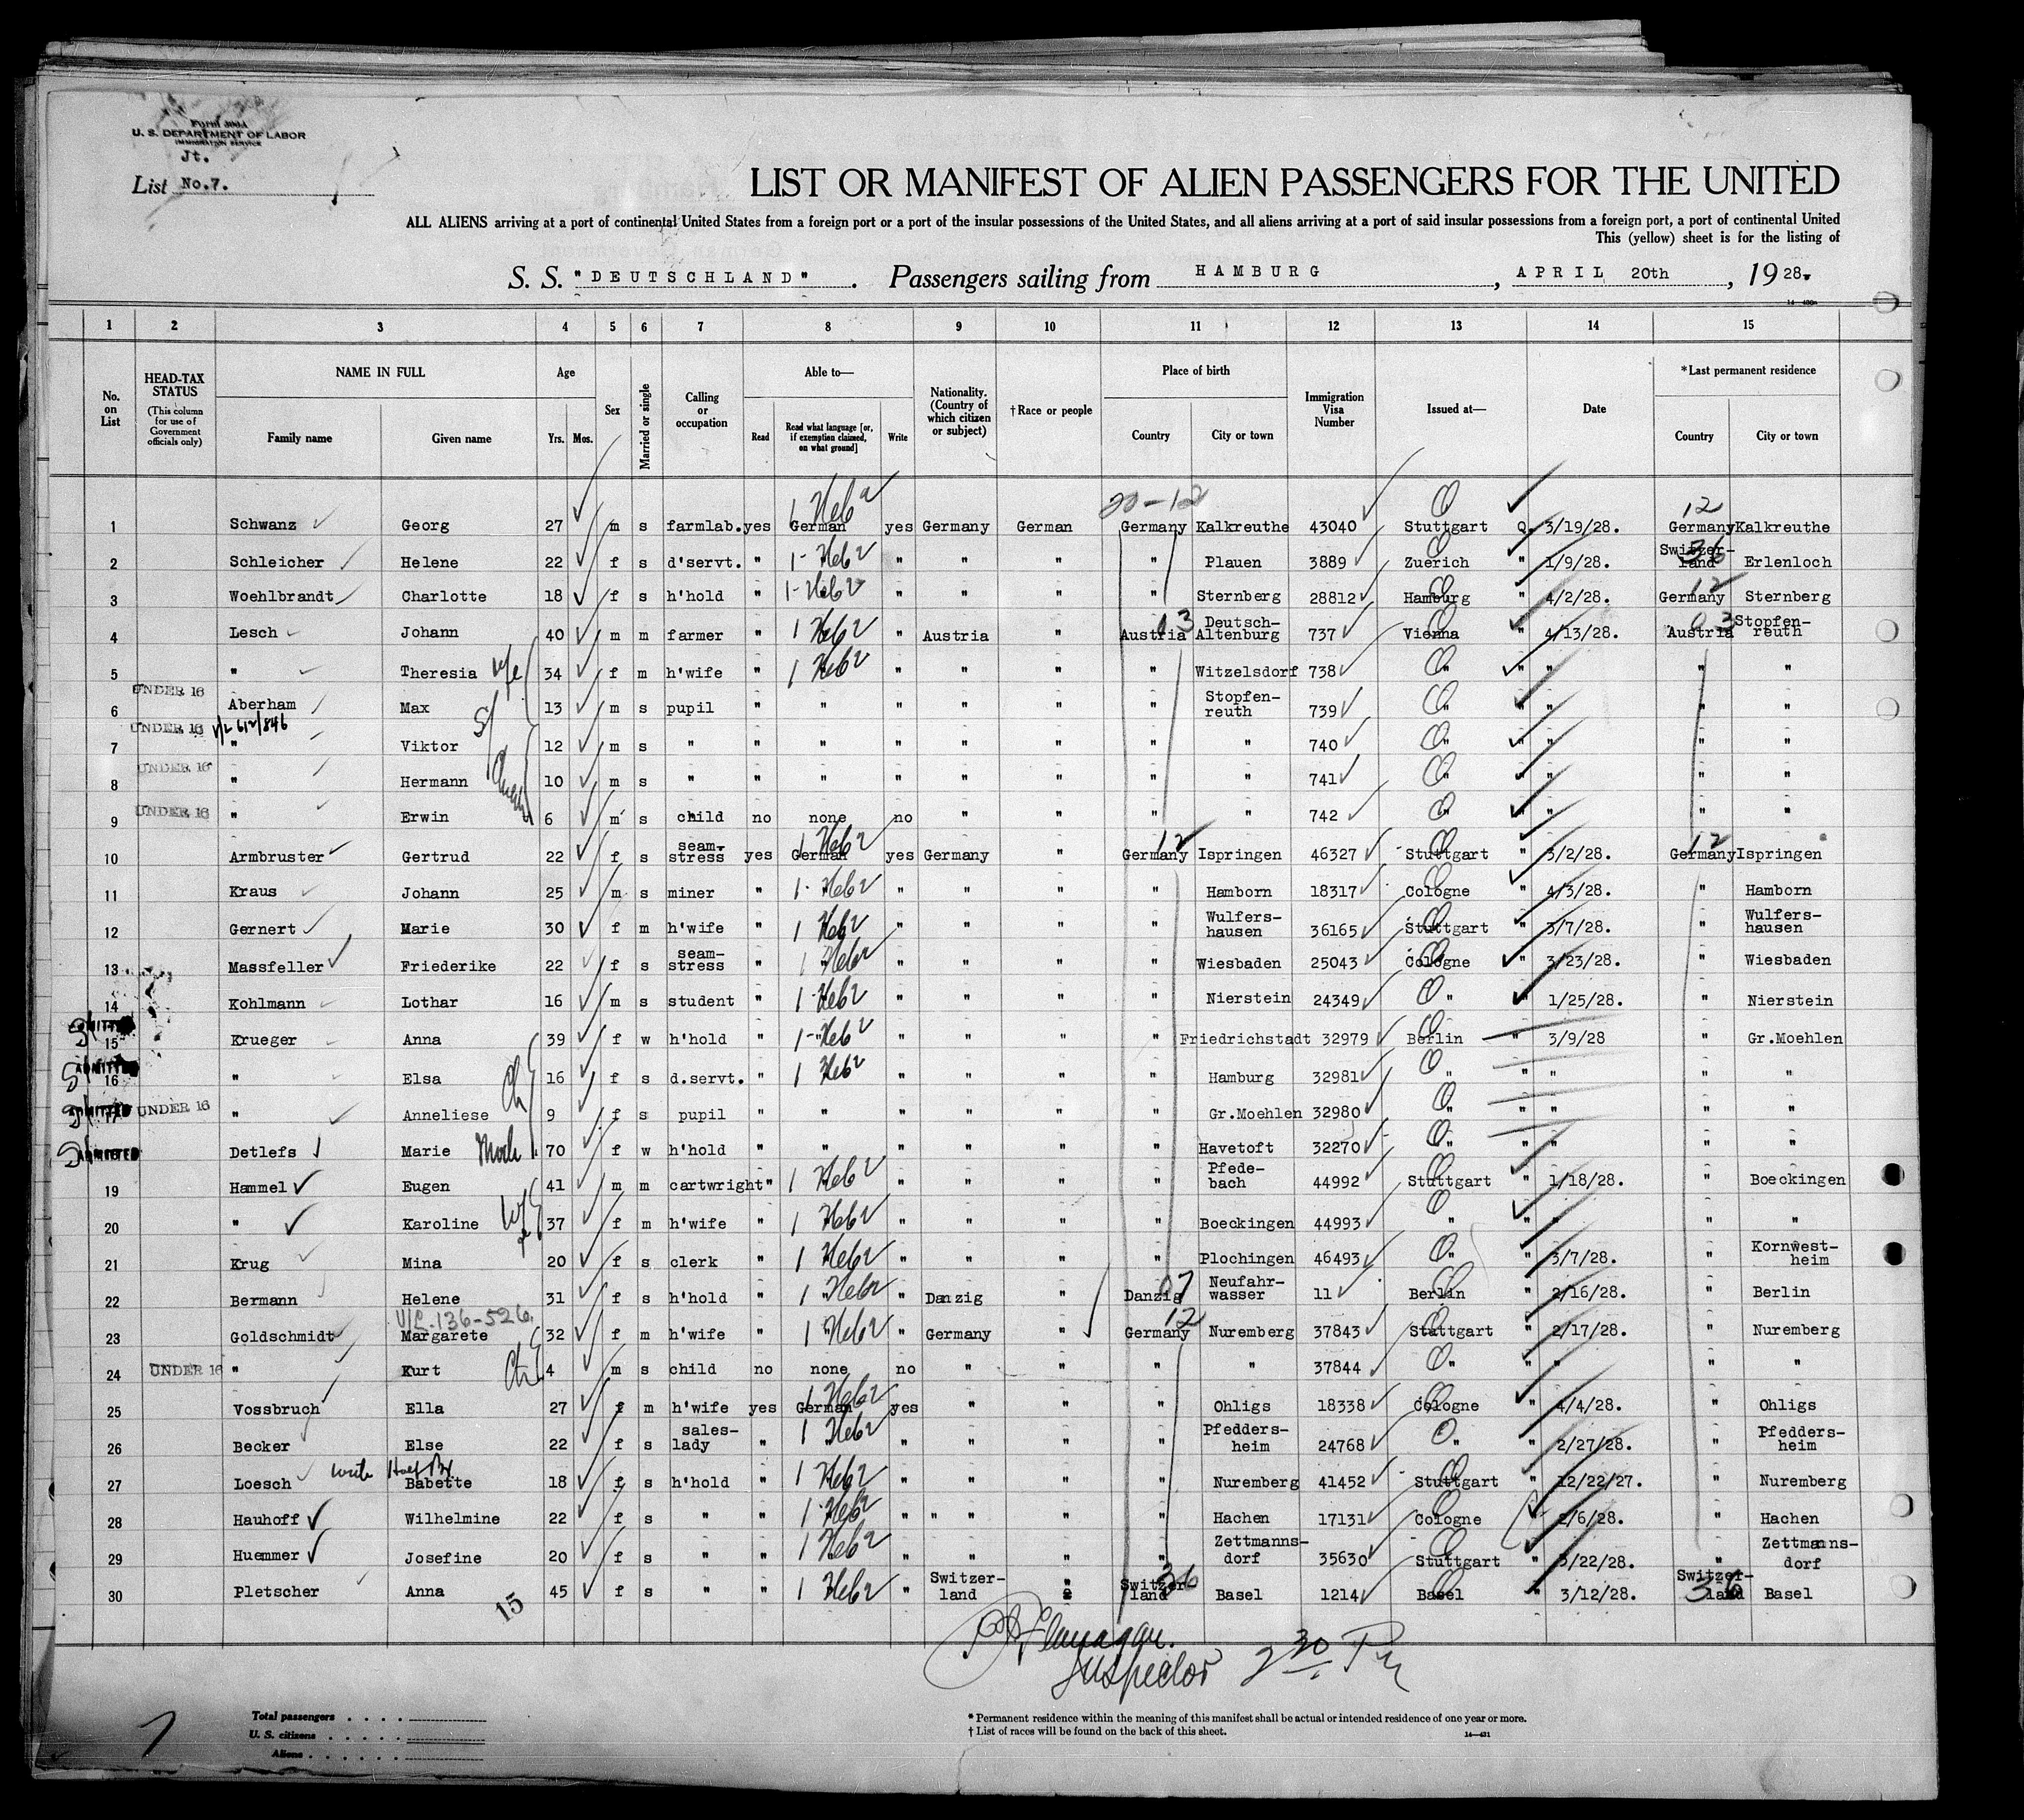 Form 500A
U. S. DEPARTMENT OF LABOR
IMMIGRATION SERVICE
Jt.
List No.7.
LIST OR MANIFEST OF ALIEN PASSENGERS FOR THE UNITED
ALL ALIENS arriving at a port of continental United States from a foreign port or a port of the insular possessions of the United States, and all aliens arriving at a port of said insular possessions from a foreign port, a port of continental United
This (yellow) sheet is for the listing of
S. S. "DEUTSCHLAND". Passengers sailing from HAMBURG, APRIL 20th, 1928.
1 2 3 4 5 6 7 8 9 10 11 12 13 14 15
No. on List
HEAD-TAX STATUS (This column for use of Government officials only)
NAME IN FULL
Family name Given name
Age
Yrs. Mos.
Sex
Married or single
Calling or occupation
Able to—
Read Read what language [or, if exemption claimed, on what ground] Write
Nationality. (Country of which citizen or subject)
†Race or people
Place of birth
Country City or town
Immigration Visa Number
Issued at—
Date
*Last permanent residence
Country City or town
20-12 12
1 Schwanz Georg 27 m s farmlab. yes German yes Germany German Germany Kalkreuthe 43040 Stuttgart Q. 3/19/28. Germany Kalkreuthe
2 Schleicher Helene 22 f s d'servt. " " " " " Plauen 3889 Zuerich " 1/9/28. Switzer-land 36 Erlenloch
3 Woehlbrandt Charlotte 18 f s h'hold " " " " " Sternberg 28812 Hamburg " 4/2/28. Germany 12 Sternberg
4 Lesch Johann 40 m m farmer " " Austria " Austria 03 Deutsch-Altenburg 737 Vienna " 4/13/28. Austria 03 Stopfen-reuth
5 " Theresia w/e 34 f m h'wife " " " " " Witzelsdorf 738 " " " " "
UNDER 16 6 Aberham Max 13 m s pupil " " " " " " Stopfen-reuth 739 " " " " "
UNDER 16 7 " Viktor 12 m s " " " " " " " " 740 " " " " "
UNDER 16 8 " Hermann 10 m s " " " " " " " " 741 " " " " "
UNDER 16 9 " Erwin 6 m s child no none no " " " " 742 " " " " "
10 Armbruster Gertrud 22 f s seam-stress yes German yes Germany " Germany 12 Ispringen 46327 Stuttgart " 3/2/28. Germany 12 Ispringen
11 Kraus Johann 25 m s miner " " " " " Hamborn 18317 Cologne " 4/3/28. " Hamborn
12 Gernert Marie 30 f m h'wife " " " " " Wulfers-hausen 36165 Stuttgart " 3/7/28. " Wulfers-hausen
13 Massfeller Friederike 22 f s seam-stress " " " " " " Wiesbaden 25043 Cologne " 3/23/28. " Wiesbaden
14 Kohlmann Lothar 16 m s student " " " " " Nierstein 24349 " " 1/25/28. " Nierstein
ADMITTED 15 Krueger Anna 39 f w h'hold " " " " " " Friedrichstadt 32979 Berlin " 3/9/28 " Gr.Moehlen
ADMITTED 16 " Elsa Ch 16 f s d.servt. " " " " " Hamburg 32981 " " " " "
ADMITTED 17 UNDER 16 " Anneliese 9 f s pupil " " " " " " Gr.Moehlen 32980 " " " " "
ADMITTED Detlefs Marie Moth 70 f w h'hold " " " " " " Havetoft 32270 " " " " "
19 Hammel Eugen 41 m m cartwright " " " " " Pfede-bach 44992 Stuttgart " 1/18/28. " Boeckingen
20 " Karoline 37 f m h'wife " " " " " Boeckingen 44993 " " " " "
21 Krug Mina 20 f s clerk " " " " " Plochingen 46493 " " 3/7/28. " Kornwest-heim
22 Bermann Helene 31 f s h'hold " " " Danzig " Danzig 07 Neufahr-wasser 11 Berlin " 2/16/28. " Berlin
V/C-136-526.
23 Goldschmidt Margarete 32 f m h'wife " " " Germany " Germany 12 Nuremberg 37843 Stuttgart " 2/17/28. " Nuremberg
UNDER 16 24 " Kurt Ch 4 m s child no none no " " " " 37844 " " " " "
25 Vossbruch Ella 27 f m h'wife yes German yes " " " Ohligs 18338 Cologne " 4/4/28. " Ohligs
26 Becker Else 22 f s sales-lady " " " " " " Pfedders-heim 24768 " " 2/27/28. " Pfedders-heim
27 Loesch Babette 18 f s h'hold " " " " " Nuremberg 41452 Stuttgart " 12/22/27. " Nuremberg
28 Hauhoff Wilhelmine 22 f s " " " " " " " Hachen 17131 Cologne " 2/6/28. " Hachen
29 Huemmer Josefine 20 f s " " " " " " Zettmanns-dorf 35630 Stuttgart " 3/22/28. " Zettmanns-dorf
30 Pletscher Anna 45 f s " " " Switzer-land " Switzer-land 36 Basel 1214 Basel " 3/12/28. Switzer-land 36 Basel
15
Flanagan.
Inspector 2 30 Pm
7
Total passengers . . . .
U. S. citizens . . . . .
Aliens . . . . . .
* Permanent residence within the meaning of this manifest shall be actual or intended residence of one year or more.
† List of races will be found on the back of this sheet.
14—431